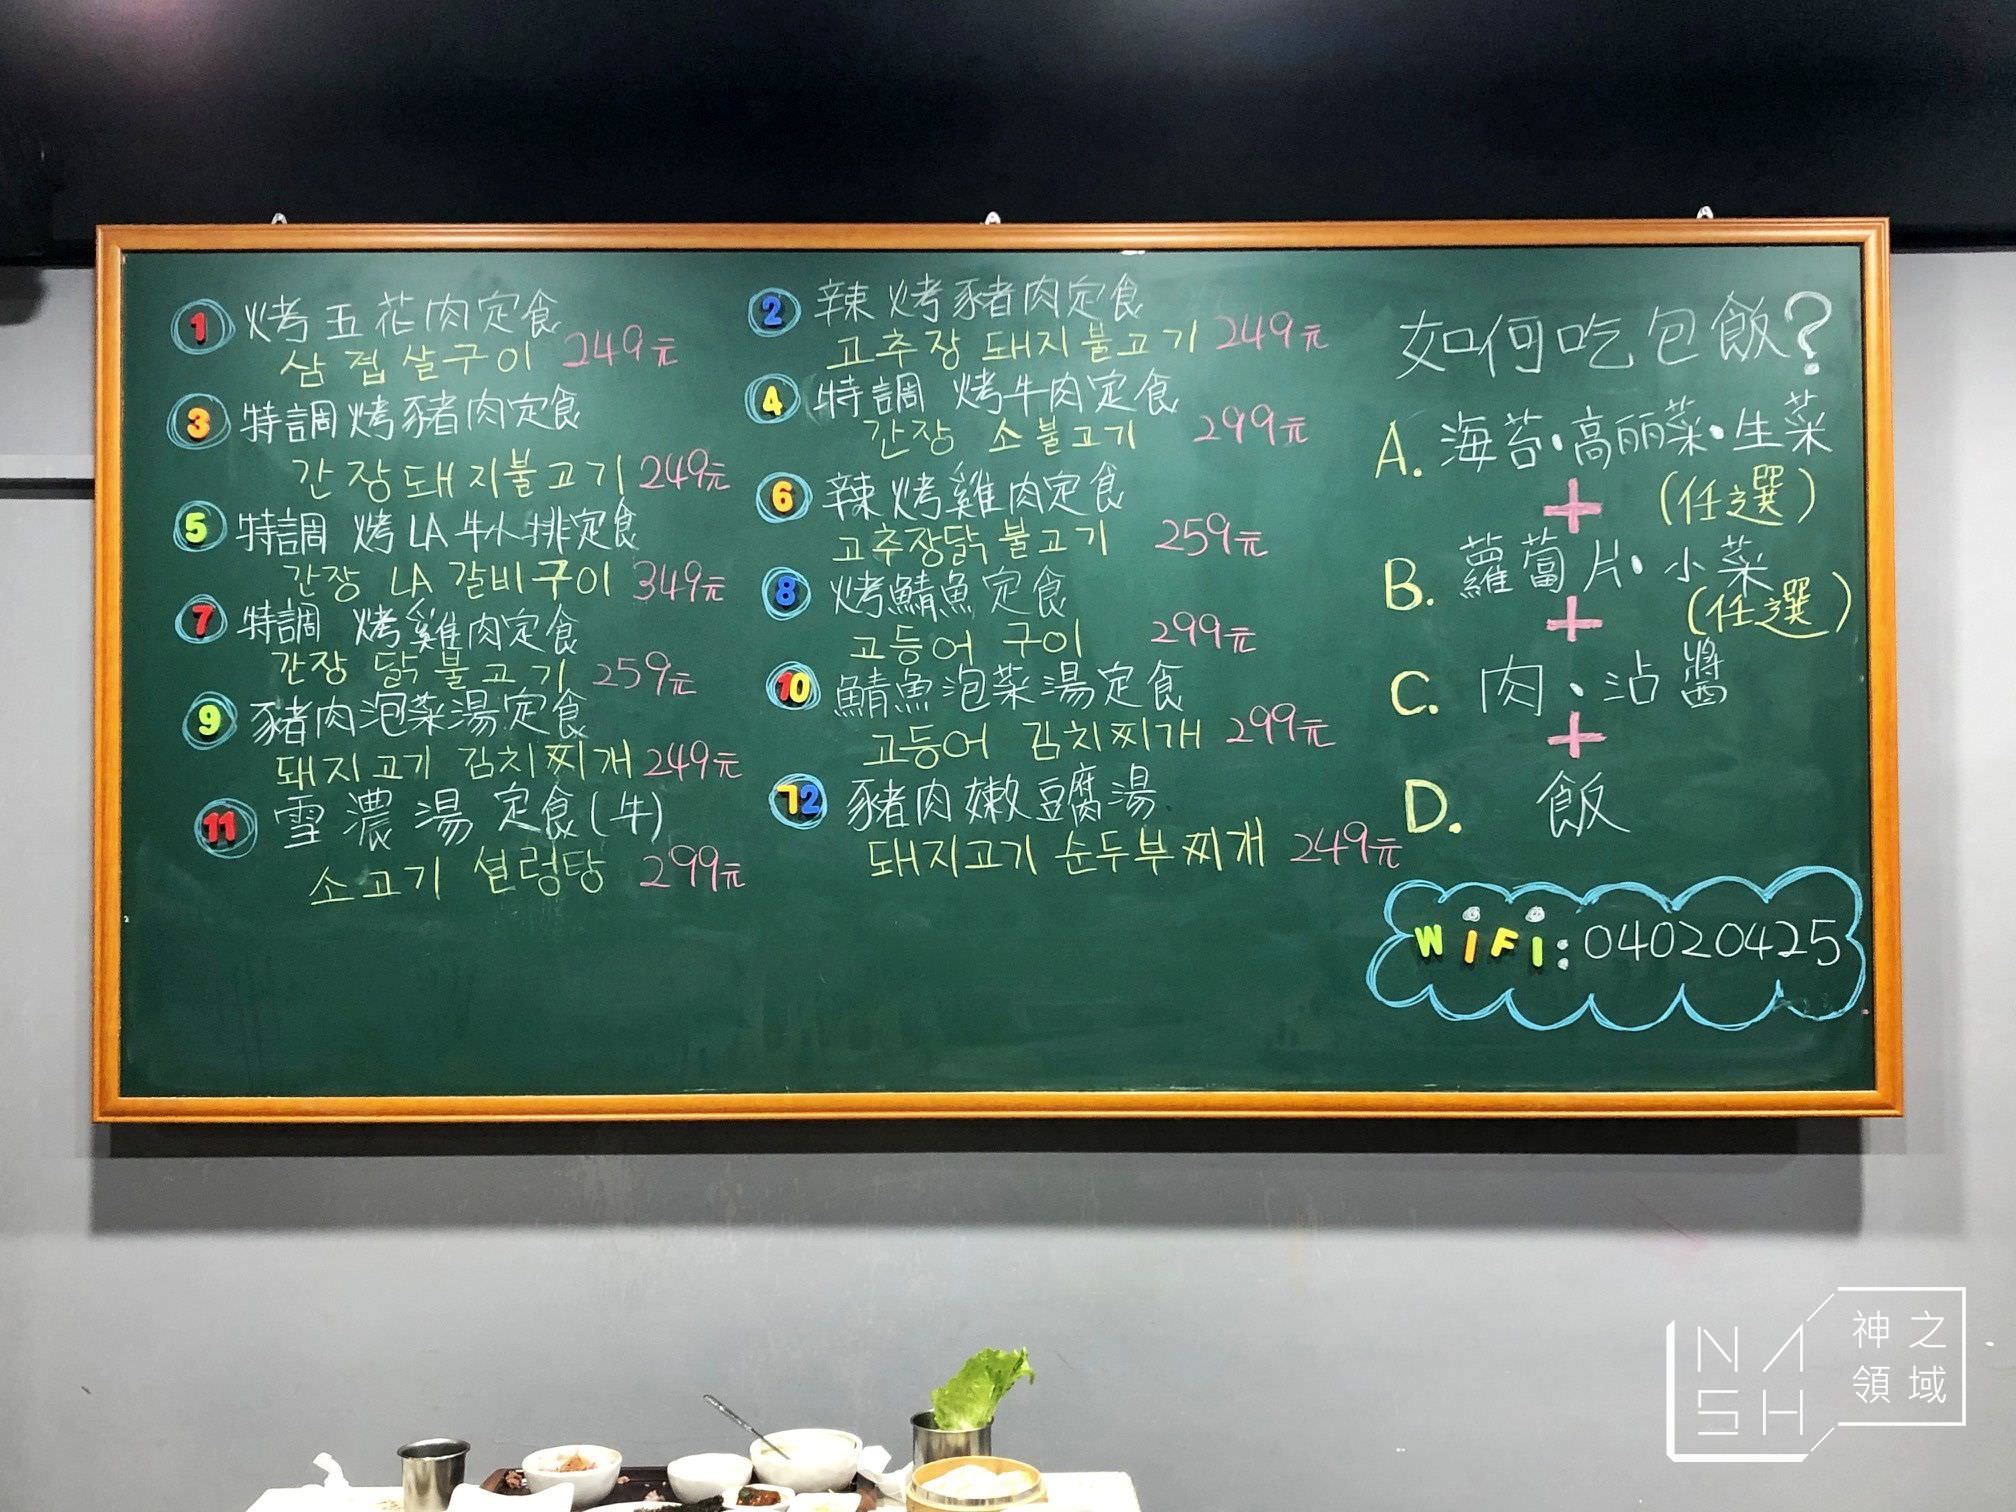 1 烤五花肉定食
삼겹살구이 249元
2 辣烤豬肉定食
고추장 돼지불고기 249元
3 特調烤豬肉定食
간장돼지불고기 249元
4 特調 烤牛肉定食
간장 소불고기 299元
5 特調 烤LA牛小排定食
간장 LA 갈비구이 349元
6 辣烤雞肉定食
고추장닭불고기 259元
7 特調 烤雞肉定食
간장 닭불고기 259元
8 烤鯖魚定食
고등어 구이 299元
9 豬肉泡菜湯定食
돼지고기 김치찌개 249元
10 鯖魚泡菜湯定食
고등어 김치찌개 299元
11 雪濃湯定食(牛)
소고기 설렁당 299元
12 豬肉嫩豆腐湯
돼지고기 순두부찌개 249元
如何吃包飯?
A. 海苔·高丽菜·生菜
+ (任選)
B. 蘿蔔片·小菜
+ (任選)
C. 肉、沾醬
+
D. 飯
WiFi:04020425
NASH
神之
領域